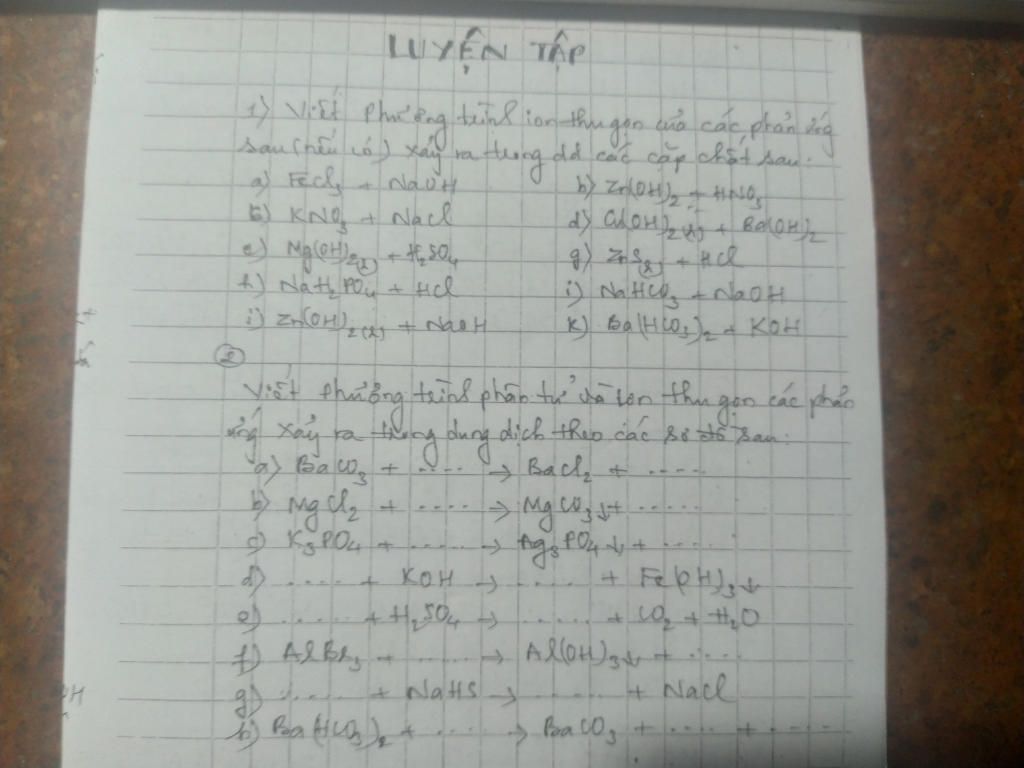 LUYỆN TẬP
1) Viết phương trình ion thu gọn của các phản ứng
sau (nếu có) xảy ra trong dd các cặp chất sau.
a) FeCl3 + NaOH b) Zn(OH)2 + HNO3
c) KNO3 + NaCl d) Cu(OH)2(r) + Ba(OH)2
e) Mg(OH)2(r) + H2SO4 g) ZnS(r) + HCl
h) NaH2PO4 + HCl i) NaHCO3 + NaOH
i) Zn(OH)2(r) + NaOH k) Ba(HCO3)2 + KOH
2
Viết phương trình phân tử và ion thu gọn các phản
ứng xảy ra trong dung dịch theo các sơ đồ sau:
a) BaCO3 + ..... → BaCl2 + .....
b) MgCl2 + ..... → MgCO3↓ + .....
c) K3PO4 + ..... → Ag3PO4↓ + .....
d) ..... + KOH → ..... + Fe(OH)3↓
e) ..... + H2SO4 → ..... + CO2 + H2O
f) AlBr3 + ..... → Al(OH)3↓ + .....
g) ..... + NaHS → ..... + NaCl
h) Ba(HCO3)2 + ..... → BaCO3 + ..... + .....